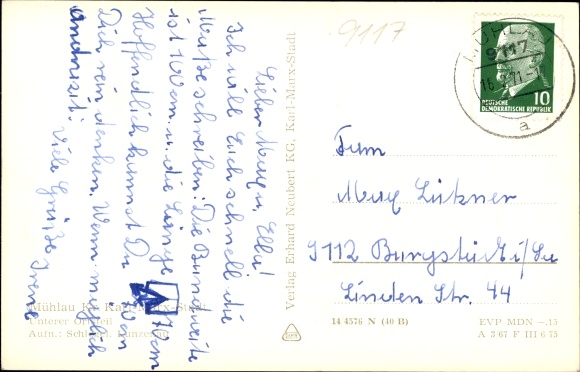 Lieber Max u. Ella!
Ich will Euch schnell die
Maße schreiben: Die Bundweite
ist 100 cm u. die Länge 70 cm
Hoffentlich kannst Du
Dich rein denken. Wenn möglich
andersseit.
Viele Grüße Irene
Mühlau Kr. Karl-Marx-Stadt
Unterer Ortsteil
Aufn.: Schl
Verlag Erhard Neubert KG, Karl-Marx-Stadt
9117
MÜHLAU
9117
16.
71
a
DEUTSCHE
DEMOKRATISCHE REPUBLIK
10
Fam
Max Lützner
9112 Burgstädt i/Sa
Linden Str. 44
14 4576 N (40 B)
EVP MDN -,15
A 3 67 F III 6 75